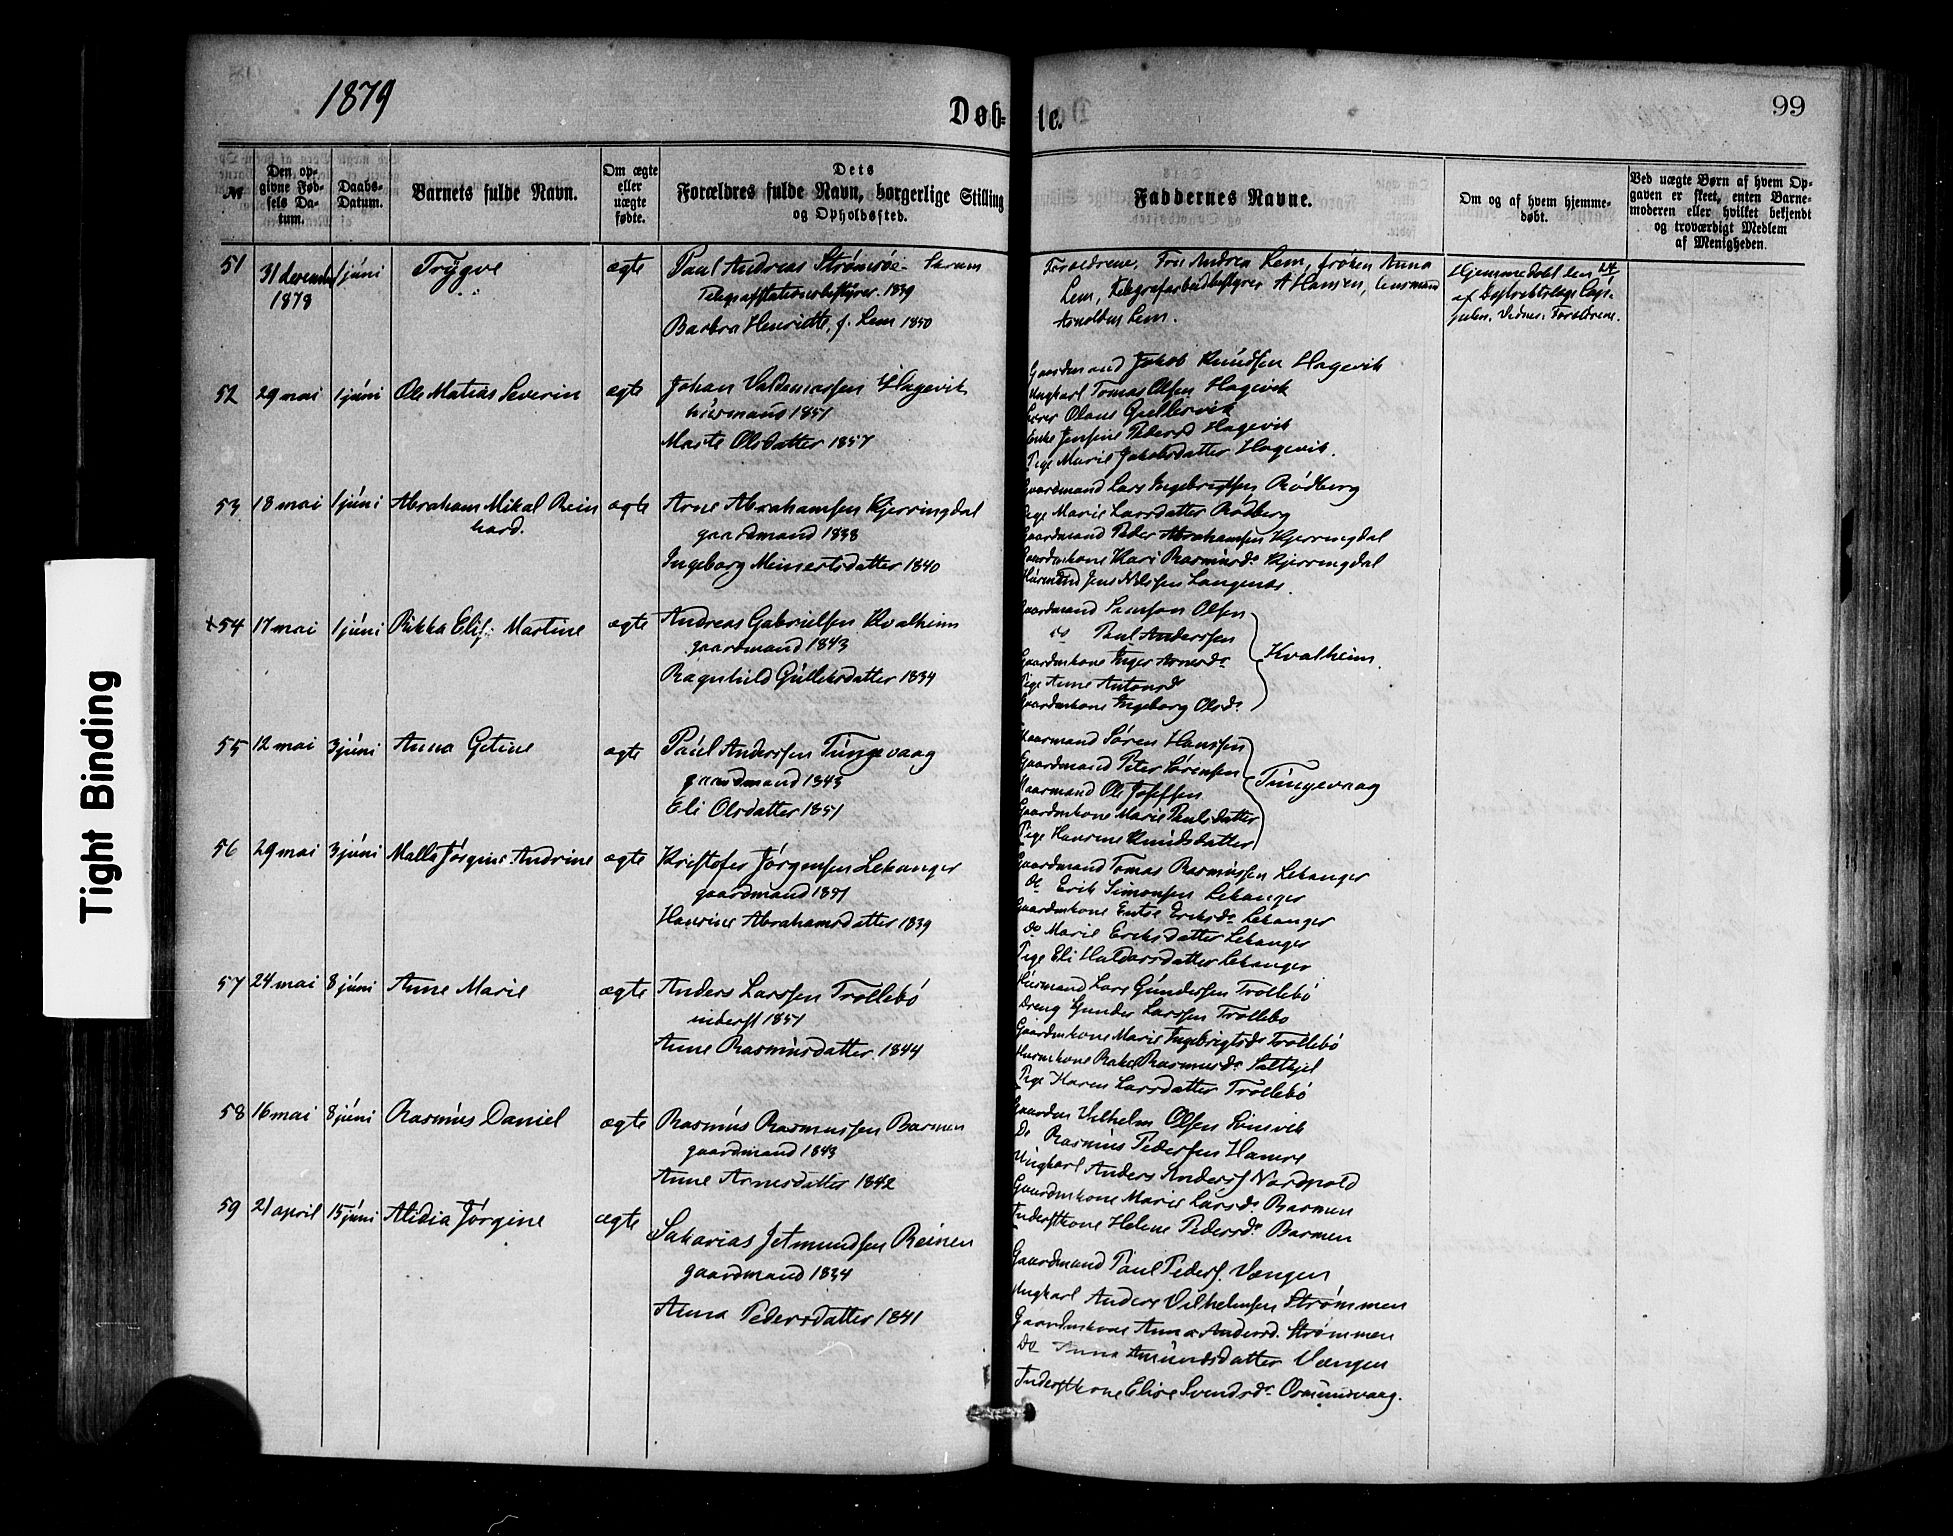 1879
Døb-
te.
99
№
Den op-
givne Fød-
sels Da-
tum.
Daabs-
Datum.
Barnets fulde Navn.
Om ægte
eller
uægte
fødte.
Dets
Forældres fulde Navn, borgerlige Stilling
og Opholdssted.
Faddernes Navne.
Om og af hvem hjemme-
døbt.
Ved uægte Børn af hvem Op-
gaven er skeet, enten Barne-
moderen eller hvilket bekjendt
og troværdigt Medlem
af Menigheden.
51
31 december
1878
1 júni
Trygve
ægte
Paul Andreas Strømsøe-
Telegrafstationsbestyrer. 1839
Barbra Henriette, f. Lem 1850
Forældrene. Fru Andrea Lem, frøken Anna
Lem, Telegrafarbeidbestyrer A Hansen, Lensmand
Arnoldus Lem.
Hjemmedøbt den
af Distriktslæge
Vidner: Forældrene.
52
29 mai
1 júni
Ole Matias Severin
ægte
Johan Valdemarssen Hagevik
húusmand 1851
Marte Olsdatter 1857
Gaardmand Jakob Knúdsen Hagevik
Ungkarl Tomas Olsen Hagevik
Lærer Olaus Gullesvik
Enke Jensine Pedersd Hagevik
Pige Marie Jakobsdatter Hagevik.
53
18 mai
1 júni
Abraham Mikal Rein
hard.
ægte
Arne Abrahamsen Kjerringdal
gaardmand 1838
Ingeborg Meinertsdatter 1840
Gaardmand Lars Ingebrigtsen Rødberg
Pige Marie Larsdatter Rødberg
Gaardmand Peder Abrahamsen Kjerringdal
Gaardmkone Kari Rasmusdr. Kjerringdal
Húsmand Jens Nilssen Langenæs.
54
17 mai
1 júni
Rikka Elis: Martine
ægte
Andreas Gabrielsen Kvalheim
gaardmand 1843
Ragnhild Gúlleksdatter 1834
Gaardmand Samson Olsen
do Paul Anderssen
Gaardmkone Inger Arnesdr.
Pige Anne Antonsd
Gaardmkone Ingeborg Olsdr.
Kvalheim.
55
12 mai
3 júni
Anna Getine
ægte
Paúl Anderssen Túngevaag
gaardmand 1843
Eli Olsdatter 1851
Søren Hanssen
Gaardmand Peter Sørensen
Ole Josefsen
Gaardmkone Marie Paulsdatter
Pige Hansine Knudsdatter
Túngevaag
56
29 mai
3 júni
Malla Jørgine Andrine
ægte
Kristofer Jørgensen Lekanger
gaardmand 1841
Hansine Abrahamsdatter 1839
Gaardmand Tomas Rasmússen Lekanger
do. Erik Simonsen Lekanger
Gaardmkone Eriksdr. Lekanger
do Marie Eriksdatter Lekanger
Pige Eli Haldorsdatter Lekanger
57
24 mai
8 júni
Anne Marie
ægte
Anders Larssen Trollebø
inderst 1851
Anne Rasmúsdatter 1844
Húsmand Lars Gúndersen Trollebø
Dreng Gunder Larssen Trollebø
Gaardmkone Marie Ingebrigtsdr. Trollebø
Rakel Rasmusdr. Saltkjel
Pige Karen Larsdatter Trollebø
58
16 mai
8 júni
Rasmús Daniel
ægte
Rasmús Rasmussen Barmen
gaardmand 1843
Anne Arnesdatter 1842
Gaardm Vilhelm Olsen
Do Rasmus Pedersen Hamre
Ungkarl Anders Anders. Nordpold
Gaardmkone Marie Larsdr. Barmen
Inderstkone Helene Pedersdr. Barmen
59
21 april
15 júni
Alidia Jørgine
ægte
Sakarias Jetmundsen Reinen
gaardmand 1834
Anna Pedersdatter 1841
Gaardmand Paul Peders. Vængen
Ungkarl Anders Vilhelmsen Strømmen
Gaardmkone Anna Andersd. Strømmen
Do Anna Amúndsdatter Vængen
Inderstkone Elise Svendsdr. Osmundvaag.
Tight Binding